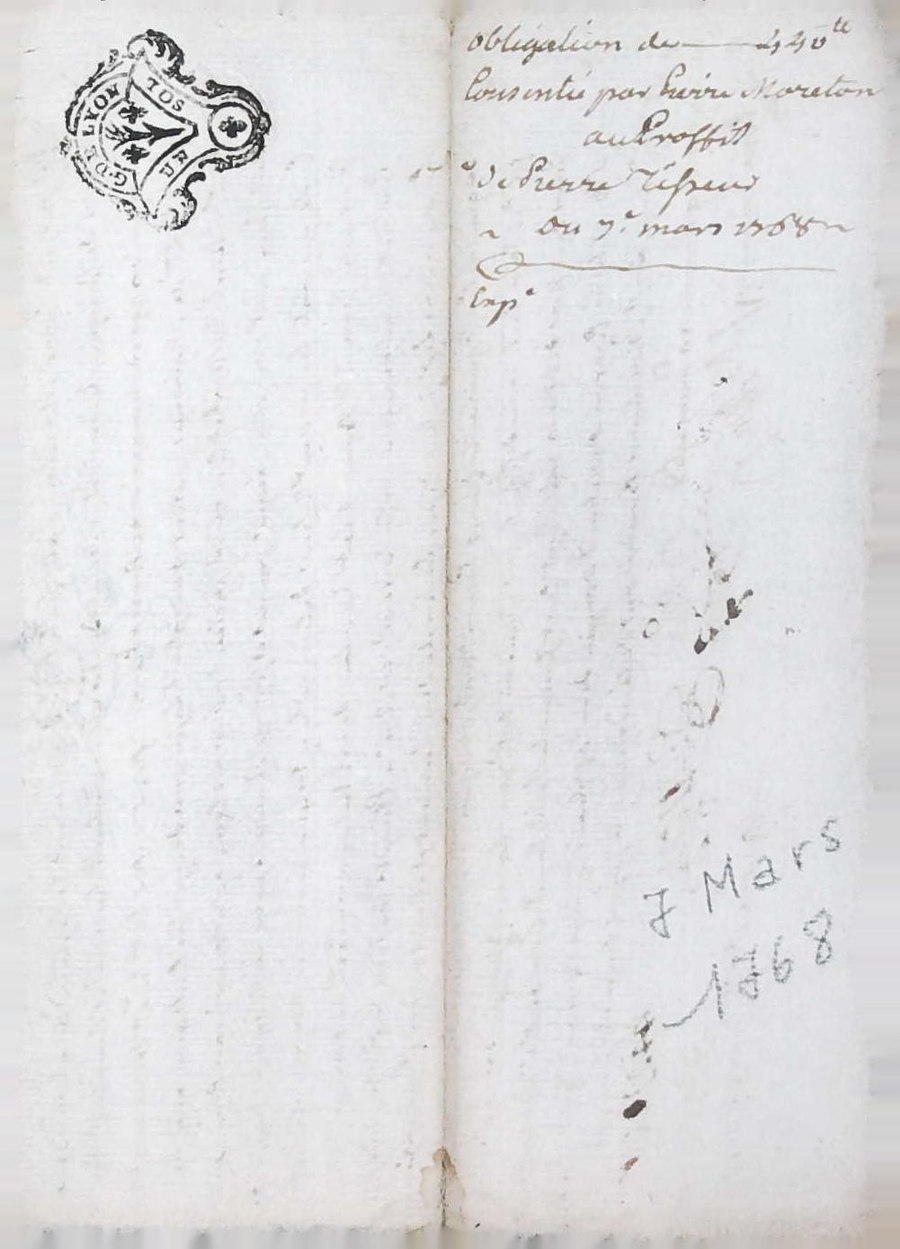 G. DE LYON
TOS
DE
obligation de 440tt
Consentie par Pierre Moreton
au Proffit
de Pierre Tisseur
du 7e mars 1768
Expe
7 Mars
1768